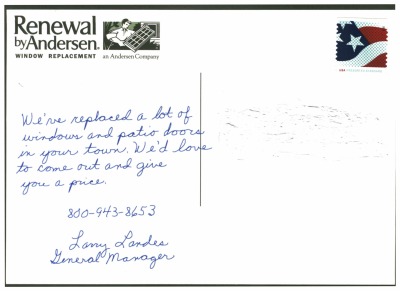 Renewal
by Andersen.
WINDOW REPLACEMENT an Andersen Company
We've replaced a lot of
windows and patio doors
in your town. We'd love
to come out and give
you a price.
800-943-8653
Larry Landes
General Manager